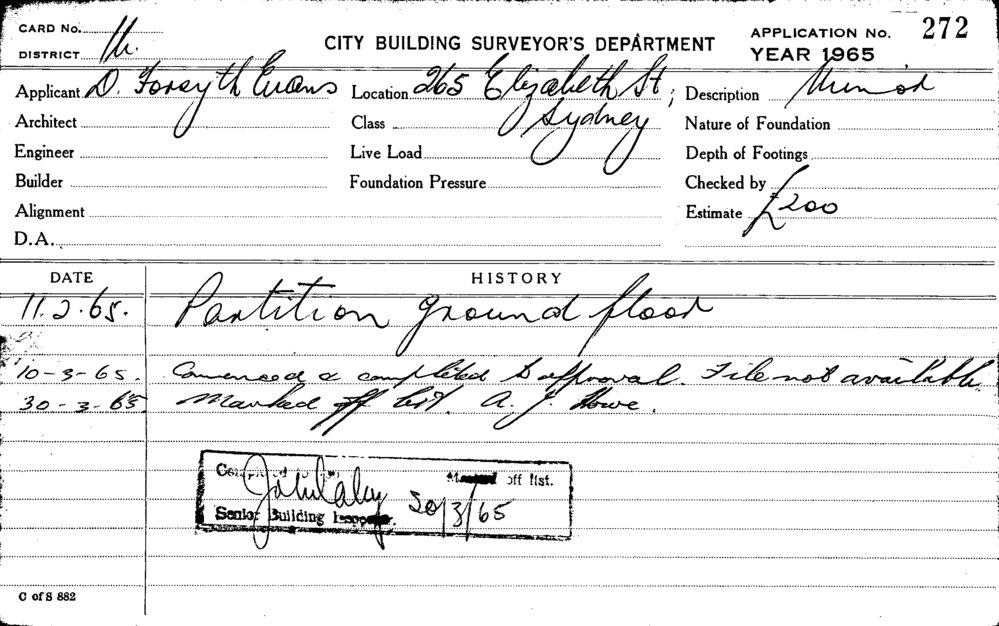 CARD No.
CITY BUILDING SURVEYOR'S DEPARTMENT
APPLICATION No. 272
YEAR 1965
DISTRICT
Applicant D. Forsyth Evans
Location 265 Elizabeth St, Sydney
Description Minor
Architect
Class
Nature of Foundation
Engineer
Live Load
Depth of Footings
Builder
Foundation Pressure
Checked by
Alignment
Estimate £200
D.A.
DATE HISTORY
11.2.65. Partition ground floor
10-3-65. Commenced & completed to approval. File not available
30-3-65 Marked off list. A. J. Howe.
off list.
30/3/65
Senior Building
C of S 882